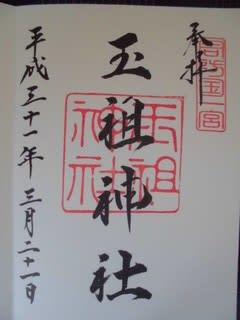 奉拝
一宮
玉祖神社
玉祖
神社
平成三十一年 三月二十一日